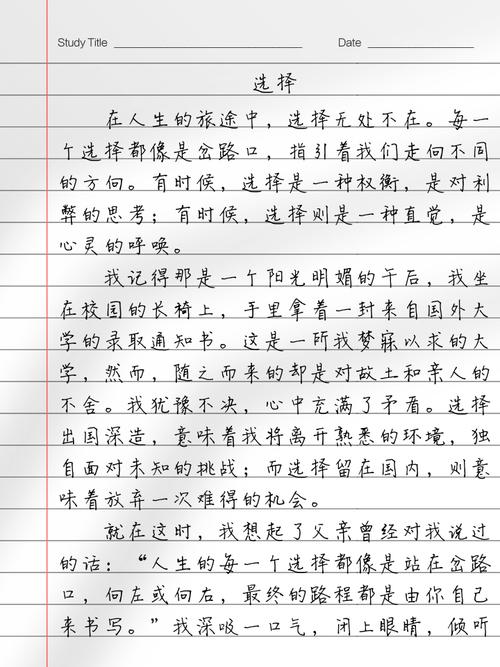 Study Title
Date
选择
在人生的旅途中，选择无处不在。每一
个选择都像是岔路口，指引着我们走向不同
的方向。有时候，选择是一种权衡，是对利
弊的思考；有时候，选择则是一种直觉，是
心灵的呼唤。
我记得那是一个阳光明媚的午后，我坐
在校园的长椅上，手里拿着一封来自国外大
学的录取通知书。这是一所我梦寐以求的大
学，然而，随之而来的却是对故土和亲人的
不舍。我犹豫不决，心中充满了矛盾。选择
出国深造，意味着我将离开熟悉的环境，独
自面对未知的挑战；而选择留在国内，则意
味着放弃一次难得的机会。
就在这时，我想起了父亲曾经对我说过
的话：“人生的每一个选择都像是站在岔路
口，向左或向右，最终的路程都是由你自己
来书写。”我深吸一口气，闭上眼睛，倾听